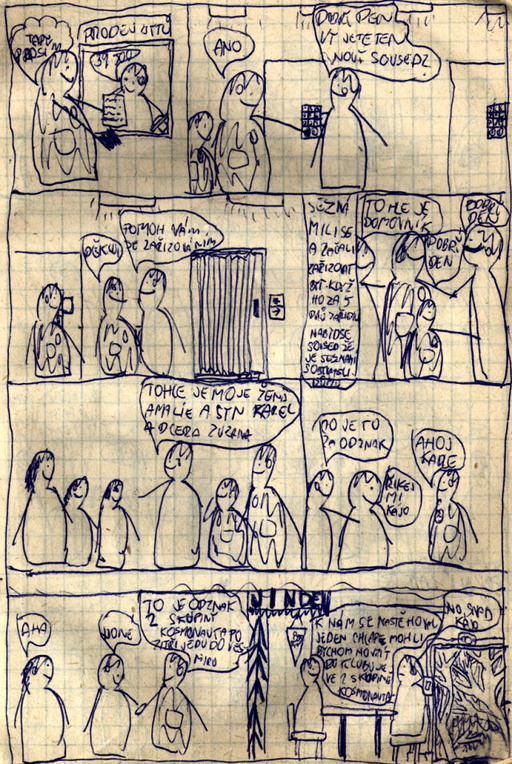 TADY
PROSÍM
PRODEJ
ANO
DOBRÝ DEN
VY JSTE TEN
NOVÝ SOUSED?
DĚKUJI
POMOH VÁM
SE ZAŘIZOVÁNIM
SEZNÁ
MILI SE
A ZAČALI
ZAŘIZOVAT
BYT KDYŽ
HO ZA 5
DNŮ ZAŘIDILI
NABIDSE
SOUSED ŽE
JE SEZNÁMÍ
S OBYVATELI
DOMU
TOHLE JE
DOMOVNIK
DOBRÝ
DEN
DOBRÝ
DEN
TOHLE JE MOJE ŽENA
AMALIE A SYN KAREL
A DCERA ZUZANA
CO JE TO
ZA ODZNAK
ŘIKEJ
MI
KAJO
AHOJ
KARLE
AHA
TO JE ODZNAK
2 SKUPINY
KOSMONAUTA PO
ZITŘI JEDU DO VES
MIRU
JINDE
K NÁM SE NASTĚHOVAL
JEDEN CHLAP. MOHLI
BYCHOM
DO KLUBU JE
VE 2 SKUPINE
KOSMONAUTA
NO, SNAD
KAJO